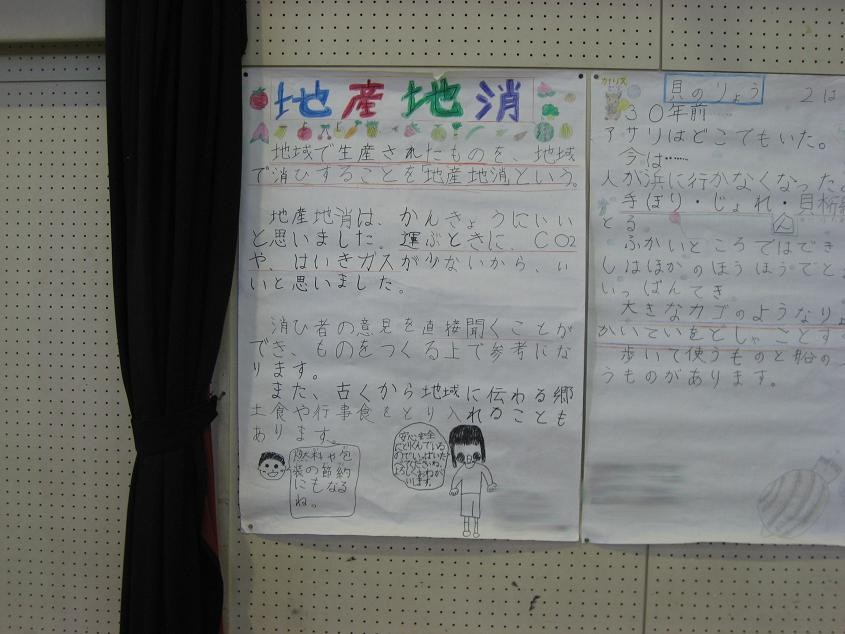 地産地消
地域で生産されたものを、地域
で消ひすることを「地産地消」という。
地産地消は、かんきょうにいい
と思いました。運ぶときに、CO2
や、はいきガスが少ないから、い
いと思いました。
消ひ者の意見を直接聞くことが
でき、ものをつくる上で参考にな
ります。
また、古くから地域に伝わる郷
土食や行事食をとり入れることも
あります。
燃料や包
装の節約
にもなる
ね。
貝のりょう
2は
30年前……
アサリはどこでもいた。
今は……
人が浜に行かなくなった
手ほり・じょれん・貝桁
とる
ふかいところではでき
しはほかのほうほうでと
いっぱんてき
大きなカゴのようなり
かいていをどしゃごとす
歩いて使うものと船の
うものがあります。